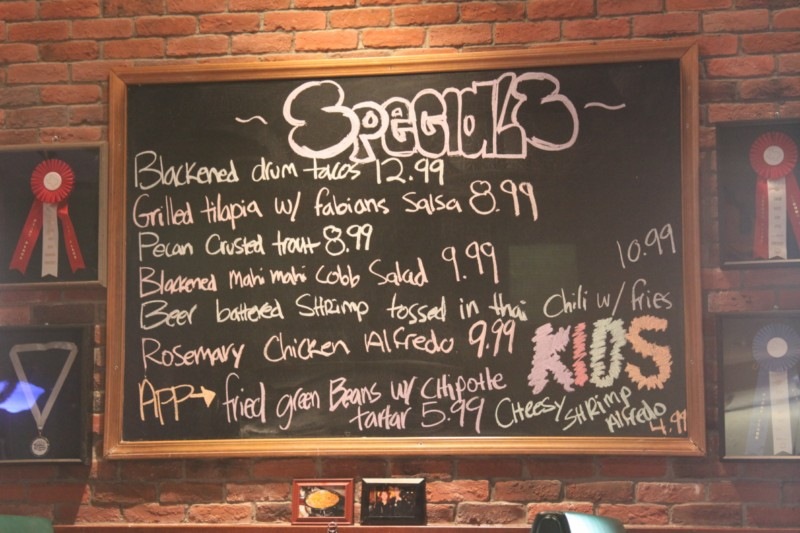 ~ Specials ~
Blackened drum tacos 12.99
Grilled tilapia w/ fabians Salsa 8.99
Pecan Crusted trout 8.99
Blackened Mahi mahi Cobb Salad 9.99
10.99
Beer battered SHRimp tossed in thai Chili w/ fries
Rosemary Chicken Alfredo 9.99
APP→ fried green Beans w/ CHipotle
tartar 5.99
KIDS
CHeesy SHRimp
Alfredo
4.99